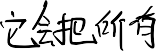 它会把所有